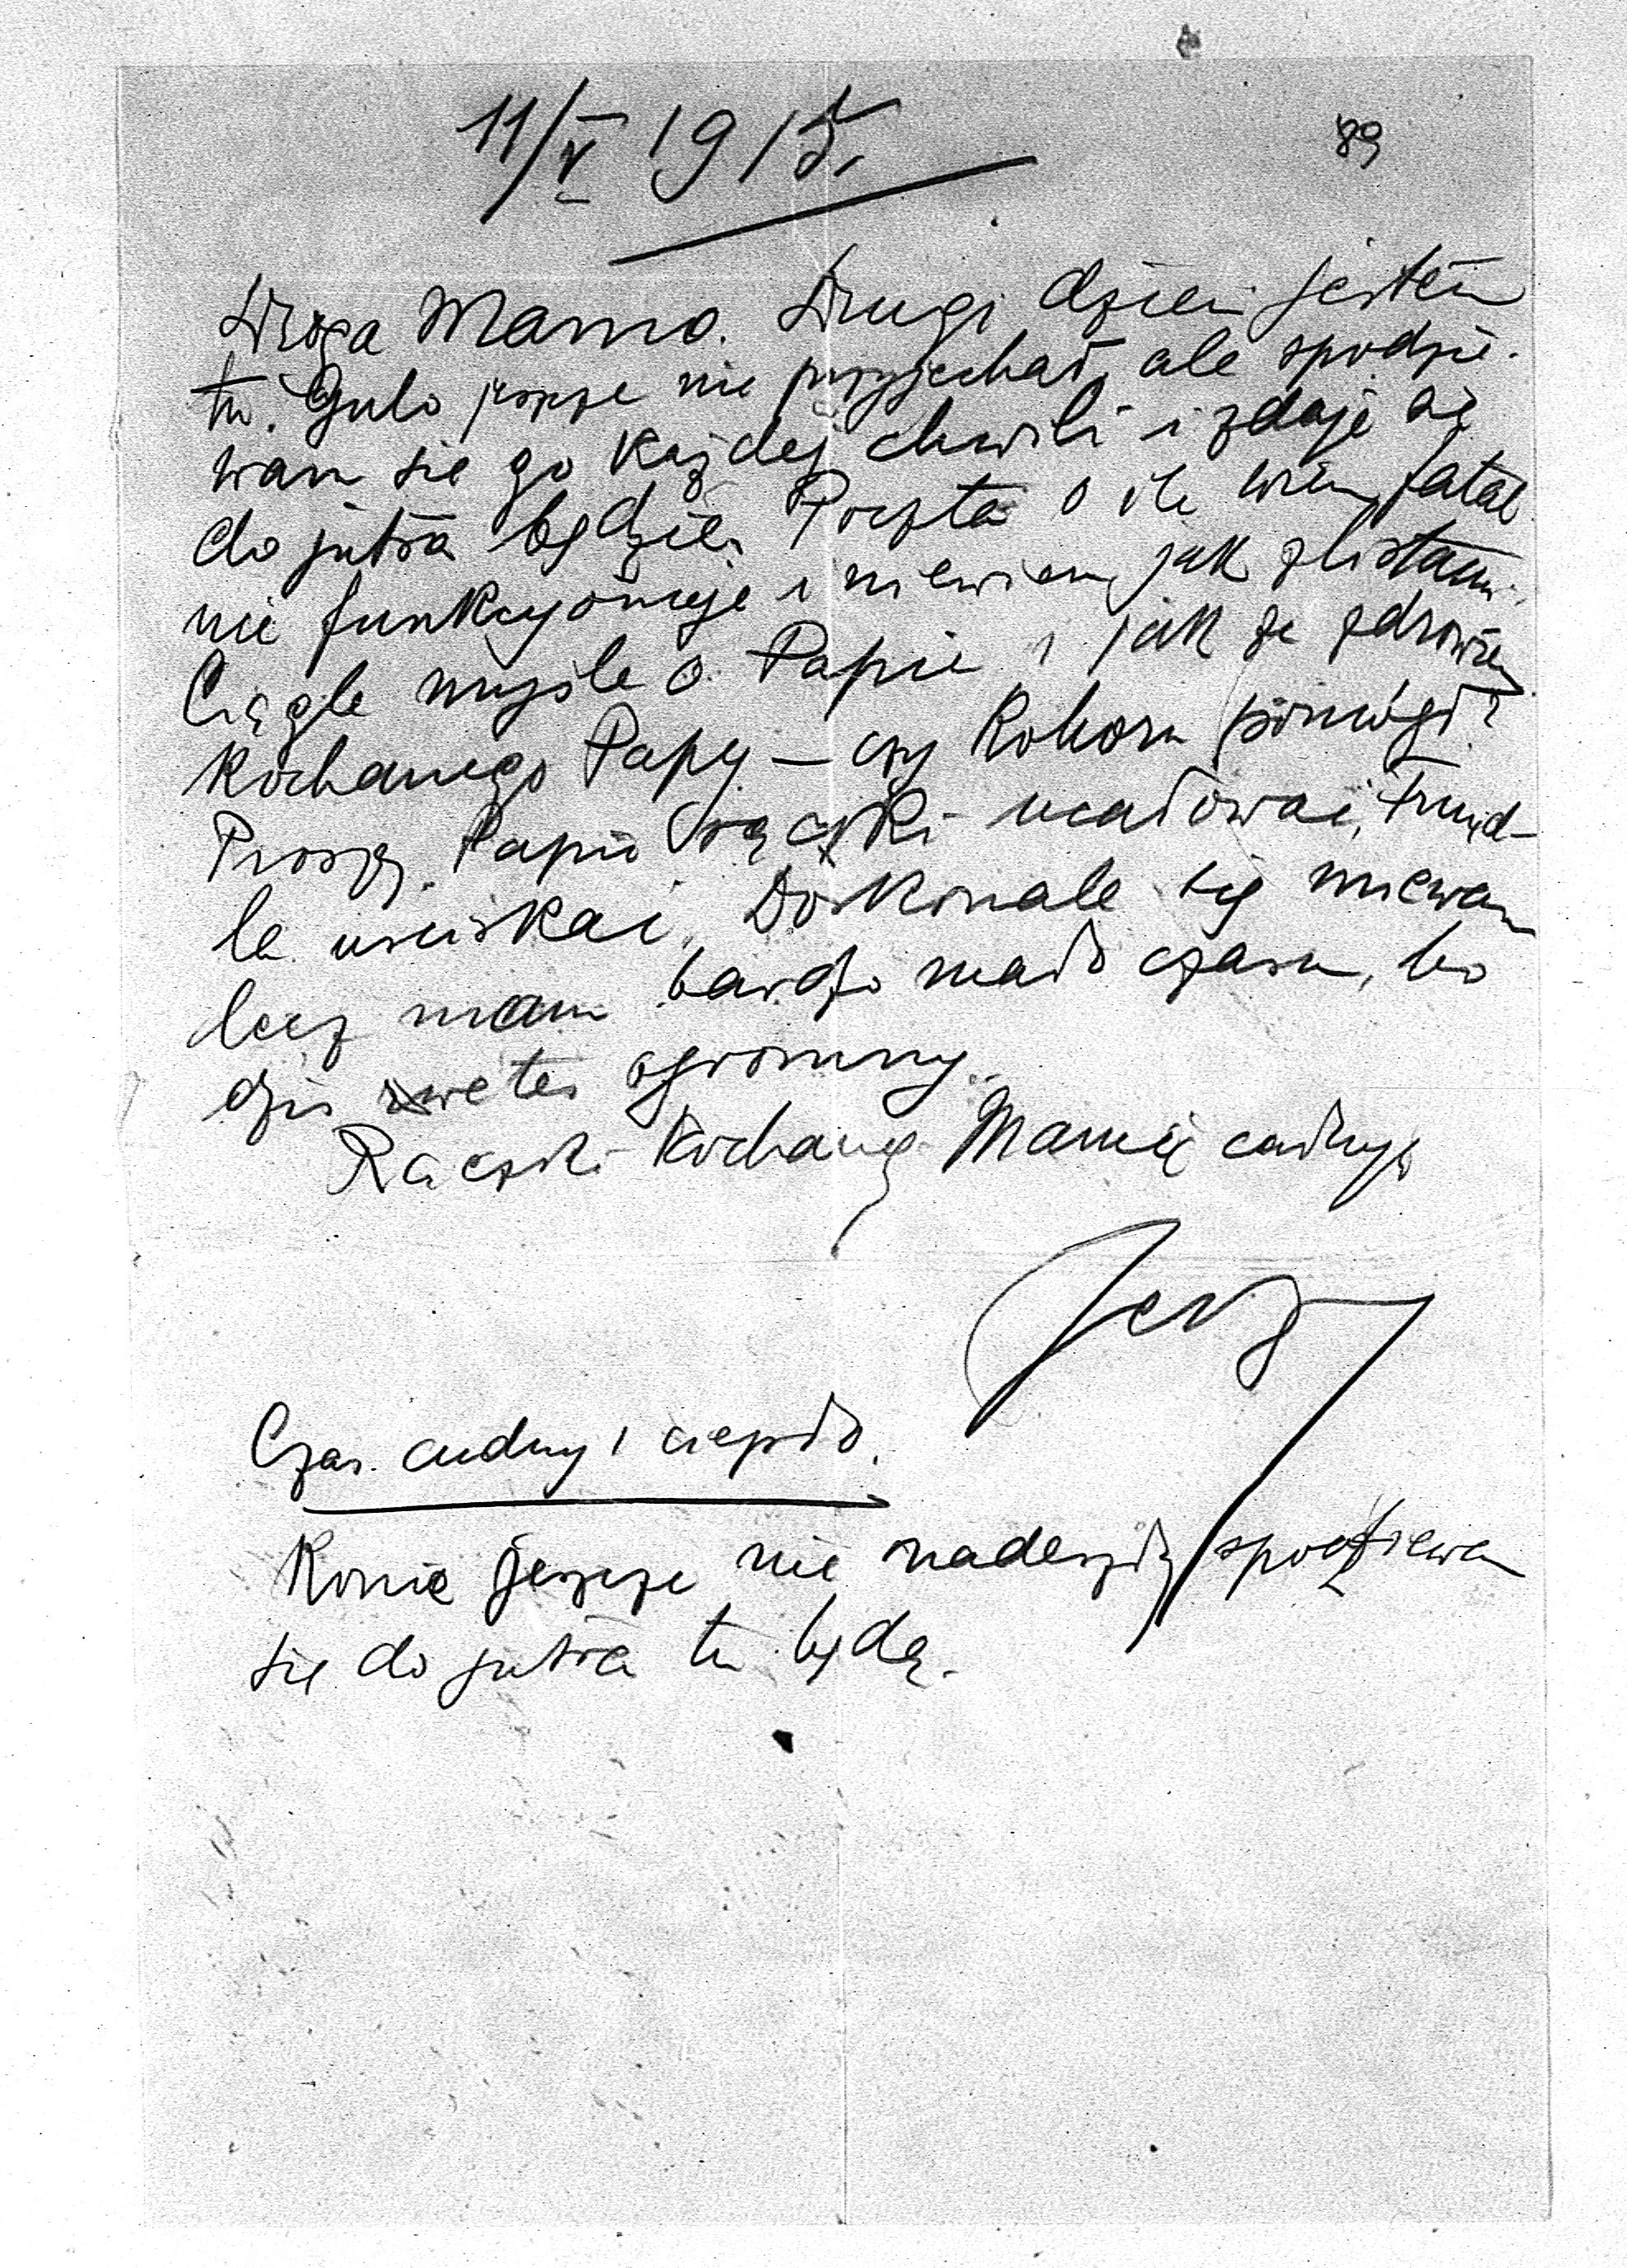 11/V 1915.
89
Droga Mamo. Drugi dzień jestem
tu. Gulo jeszcze nie przyjechał, ale spodzie-
wam się go każdej chwili i zdaje się
do jutra będzie. Poczta o ile wiem
nie funkcyonuje i niewiem jak z listami.
Ciągle myślę o Papie i jak ze zdrowiem
kochanego Papy – czy pomógł?
Proszę Papie rączki ucałować,
uściskać. Doskonale się miewam
lecz mam bardzo mało czasu, bo
dziś rwetes ogromny.
Rączki kochanej Mamie całuję
Jerzy
Czas cudny i ciepło.
Konie jeszcze nie nadeszły spodziewam
się do jutra tu będą.